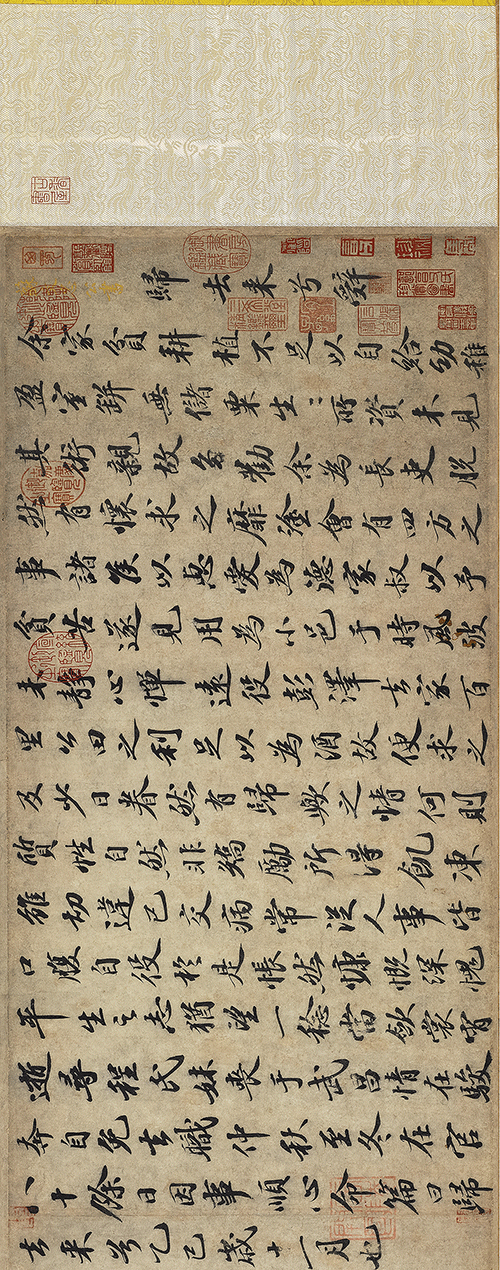 歸去來兮辭
余家貧耕植不足以自給幼稚
盈室缾無儲粟生〻所資未見
其術親故多勸余為長吏脫
然有懷求之靡塗會有四方之
事諸侯以惠愛為德家叔以予
貧苦遂見用為小邑于時風波
未靜心憚遠役彭澤去家百
里公田之利足以為酒故便求之
及少日眷然有歸歟之情何則
質性自然非矯勵所得飢凍
雖切違己交病常從人事皆
口腹自役於是悵然慷慨深愧
平生之志猶望一稔當斂裳宵
逝尋程氏妹喪于武昌情在駿
奔自免去職仲秋至冬在官
八十餘日因事順心命篇曰歸
去來兮乙巳歲十一月也